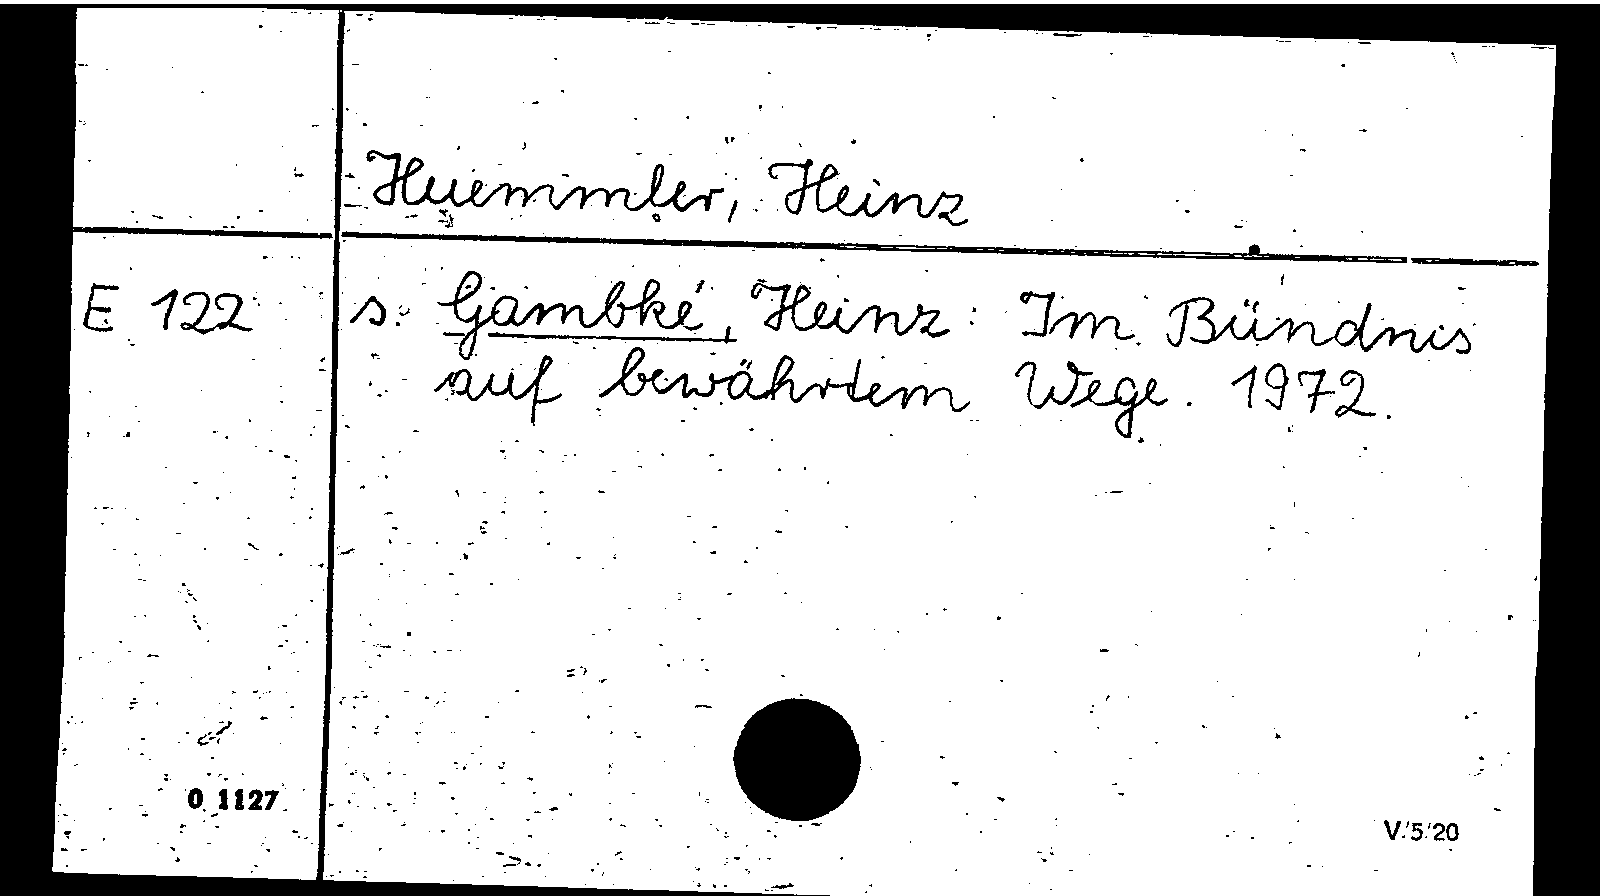 Huemmler, Heinz
E 122 s. Gambké, Heinz: Im Bündnis
auf bewährtem Wege. 1972.
0 1127
V/5/20